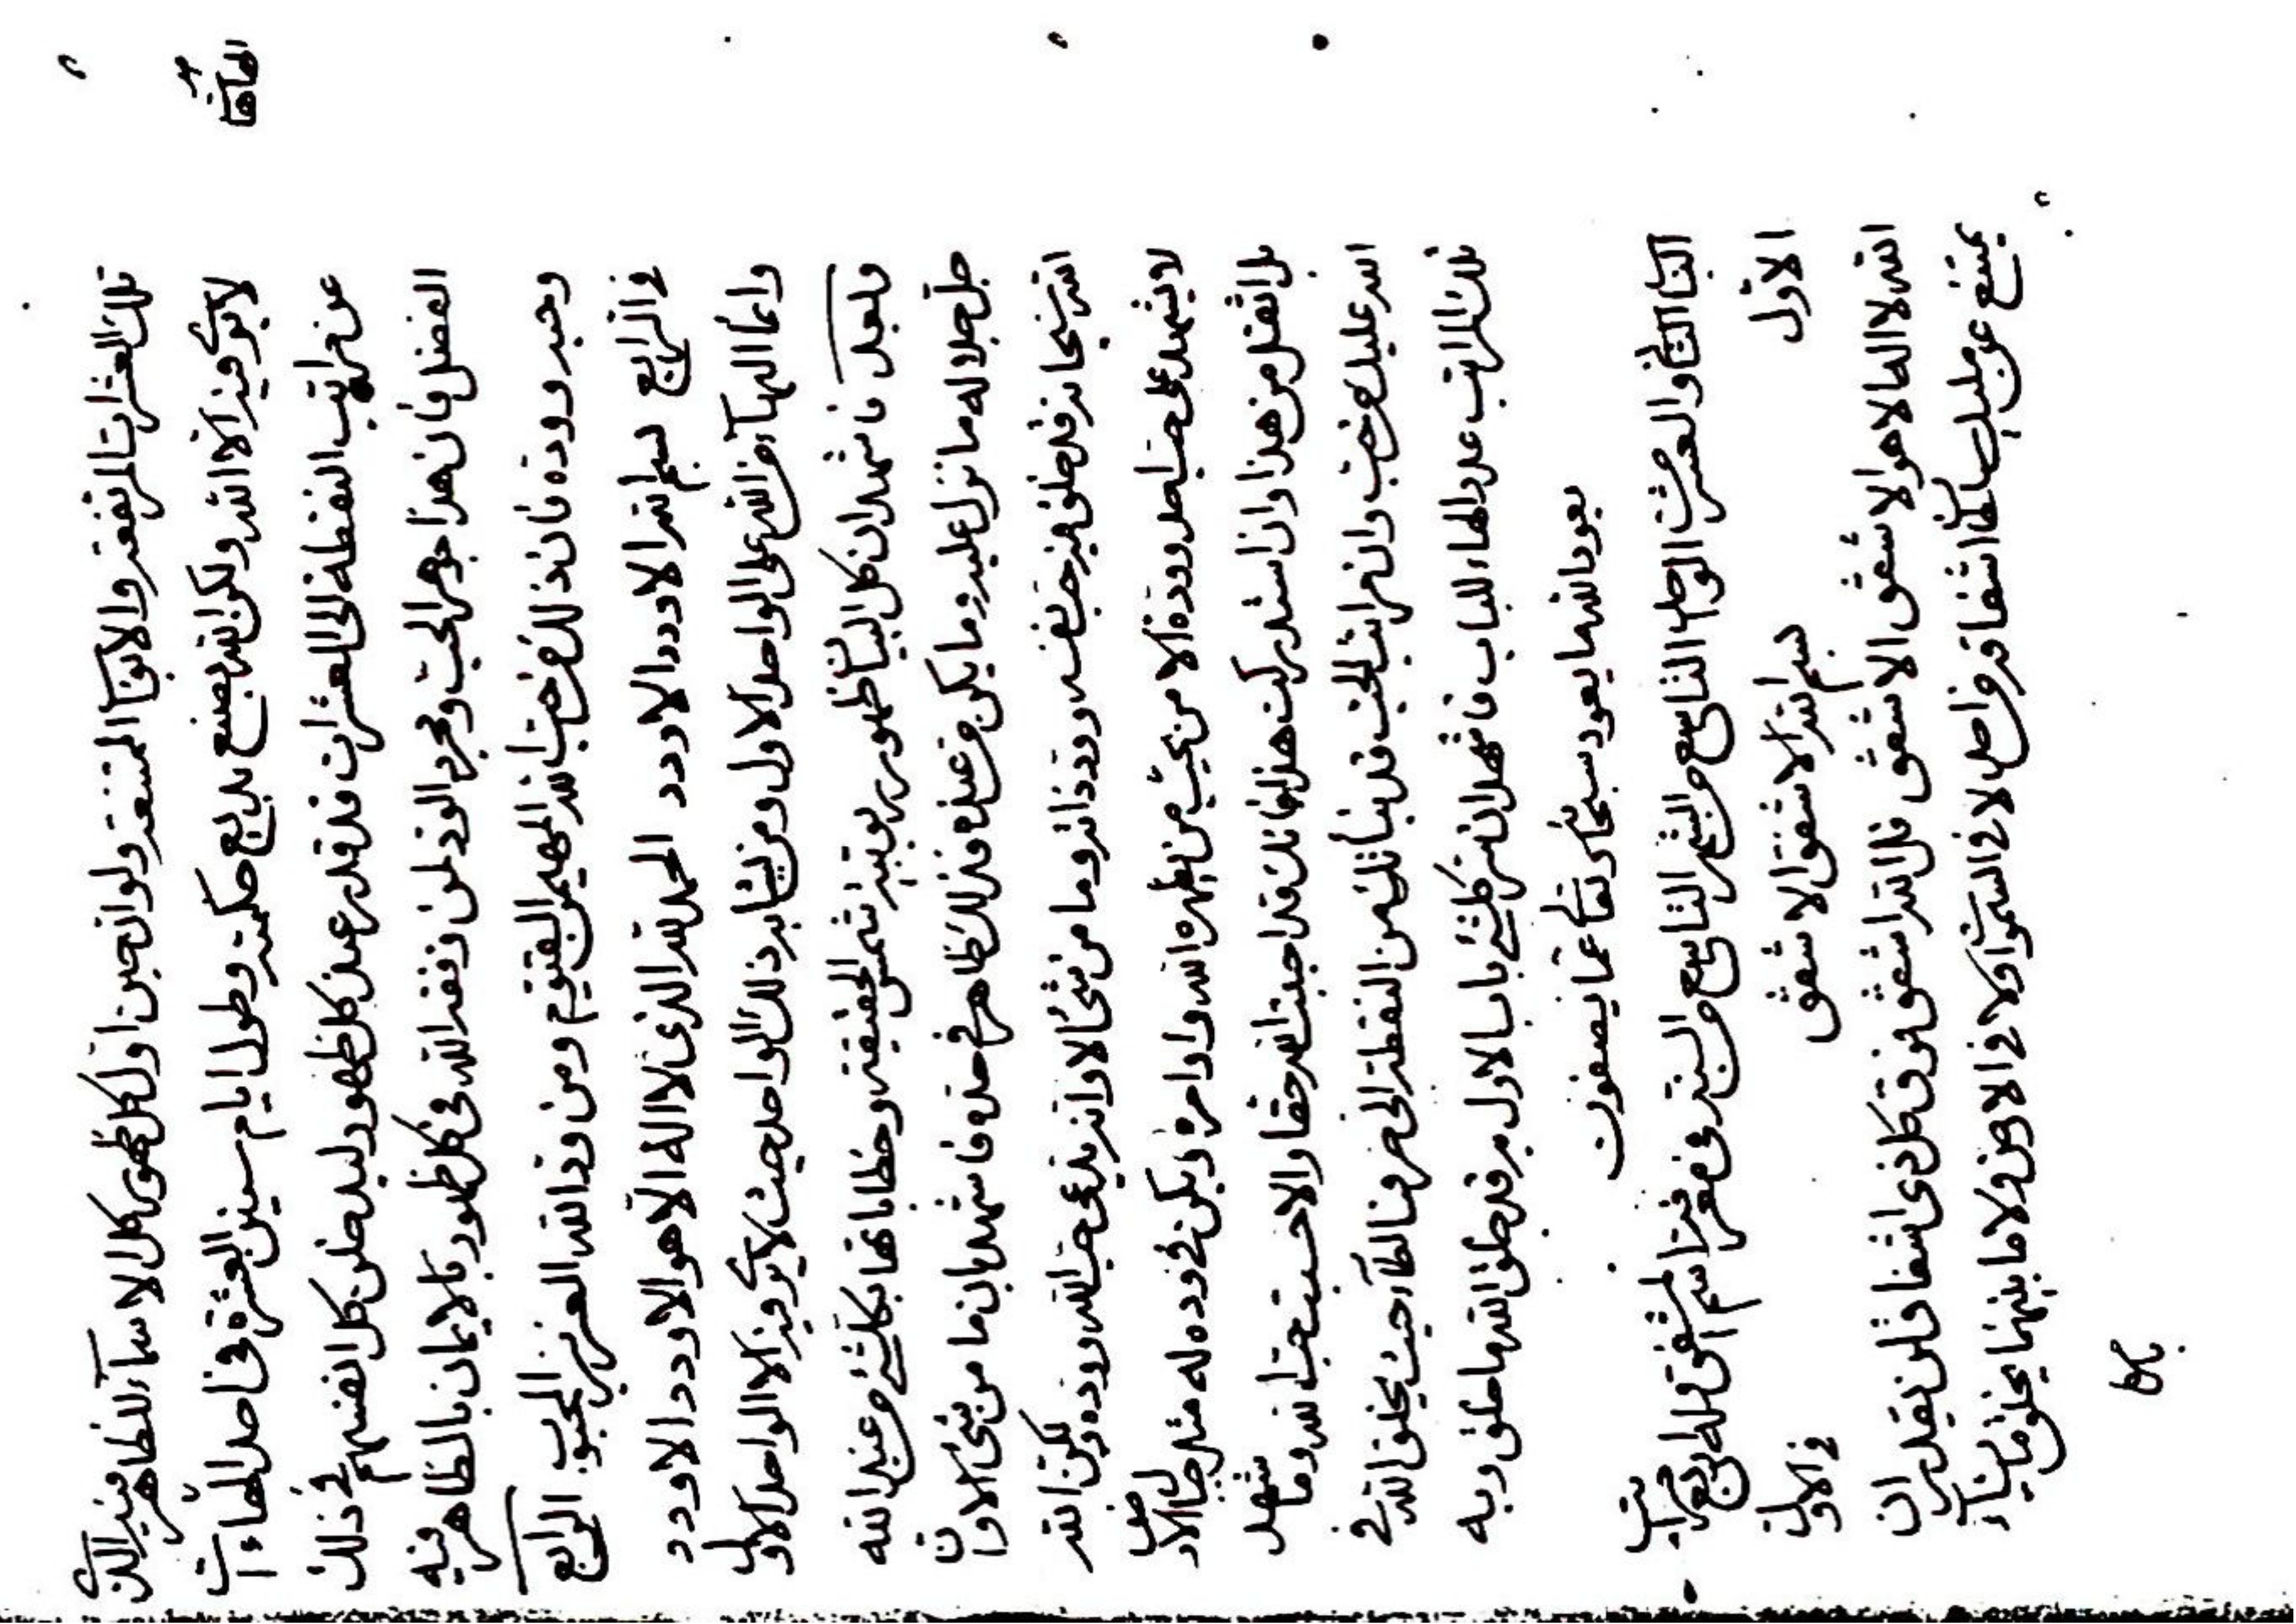 تلك العشرات المرتفعة والابهآ الممتنعة ولو ان حين اول كل ظهور كل الاسمآء للظاهر فيه الك
لا يرى فيه الا الله ولكن الله يصنع بديع حكمته وطول ايام سنين العشرة فى احد الهاءآت
عن مراتب النقطة الى العشرات قد قدر عند كل ظهور ليدخلن كل انفسهم فى ذلك
الفضل فان هذا جوهر الحب ومجرد الود لمن وفقه الله فى كل ظهور بالايمان بالظاهر فيه
وحبه ووده فان ذلك عز حب الله المهيمن القيوم ومن ود الله العزيز المحبوب الرابع
فى الرابع بسم الله الاودد الاودد الحمد لله الذى لا اله الا هو الاودد الاودد
وانما البهآء من الله على الواحد الاول ومن يشابه ذلك الواحد حيث لا يرى فيه الا الواحد الاول
وبعد فاشهد ان كل البيان ظهور ربوبية شمس الحقيقة وخطاباتها بكلشئ من عند الله
جل جلاله ما نزل عليه وما يكن من عنده فذلك ظاهر فى حده فاشهد بان ما من شئ الا وان
الله سبحانه قد خلق فيه حب نفسه وود ذاته وما من شئ الا وانه يدعى حب الله ووده ولكن الله
لا يشهد على حب احد ووده الا من يحب من يظهره الله واوامره ويكن فى وده له مثل حب الاول
بل اثقل من هذا وان استدركت هذا فانك قد احببت الله حقا والا حسبت حب الله وما شهد
الله عليك من حب وان مراتب الحب قد بنأتك من النقطة الى منها الطآء حيث يخلق الله فى
تلك المراتب عدد الهاء للباب فاشهد ان كلشئ باب الاول به قد خلق الله ما خلق وبه
يعود الله ما يعود سبحانه وتعالى عما يصفون
الباب الثانى والعشر من الواحد التاسع من الشهر التاسع من السنة فى معرفة اسم المشفق وله اربع مراتب
الاول فى الاول بسم الله الاشفق الاشفق
الله لا اله الا هو الاشفق الاشفق قل الله اشفق فوق كل ذى اشفاق لن يقدر ان
يمتنع عن مليك سلطان اشفاقه من احد لا فى السموات ولا فى الارض ولا ما بينهما يخلق ما يشآء